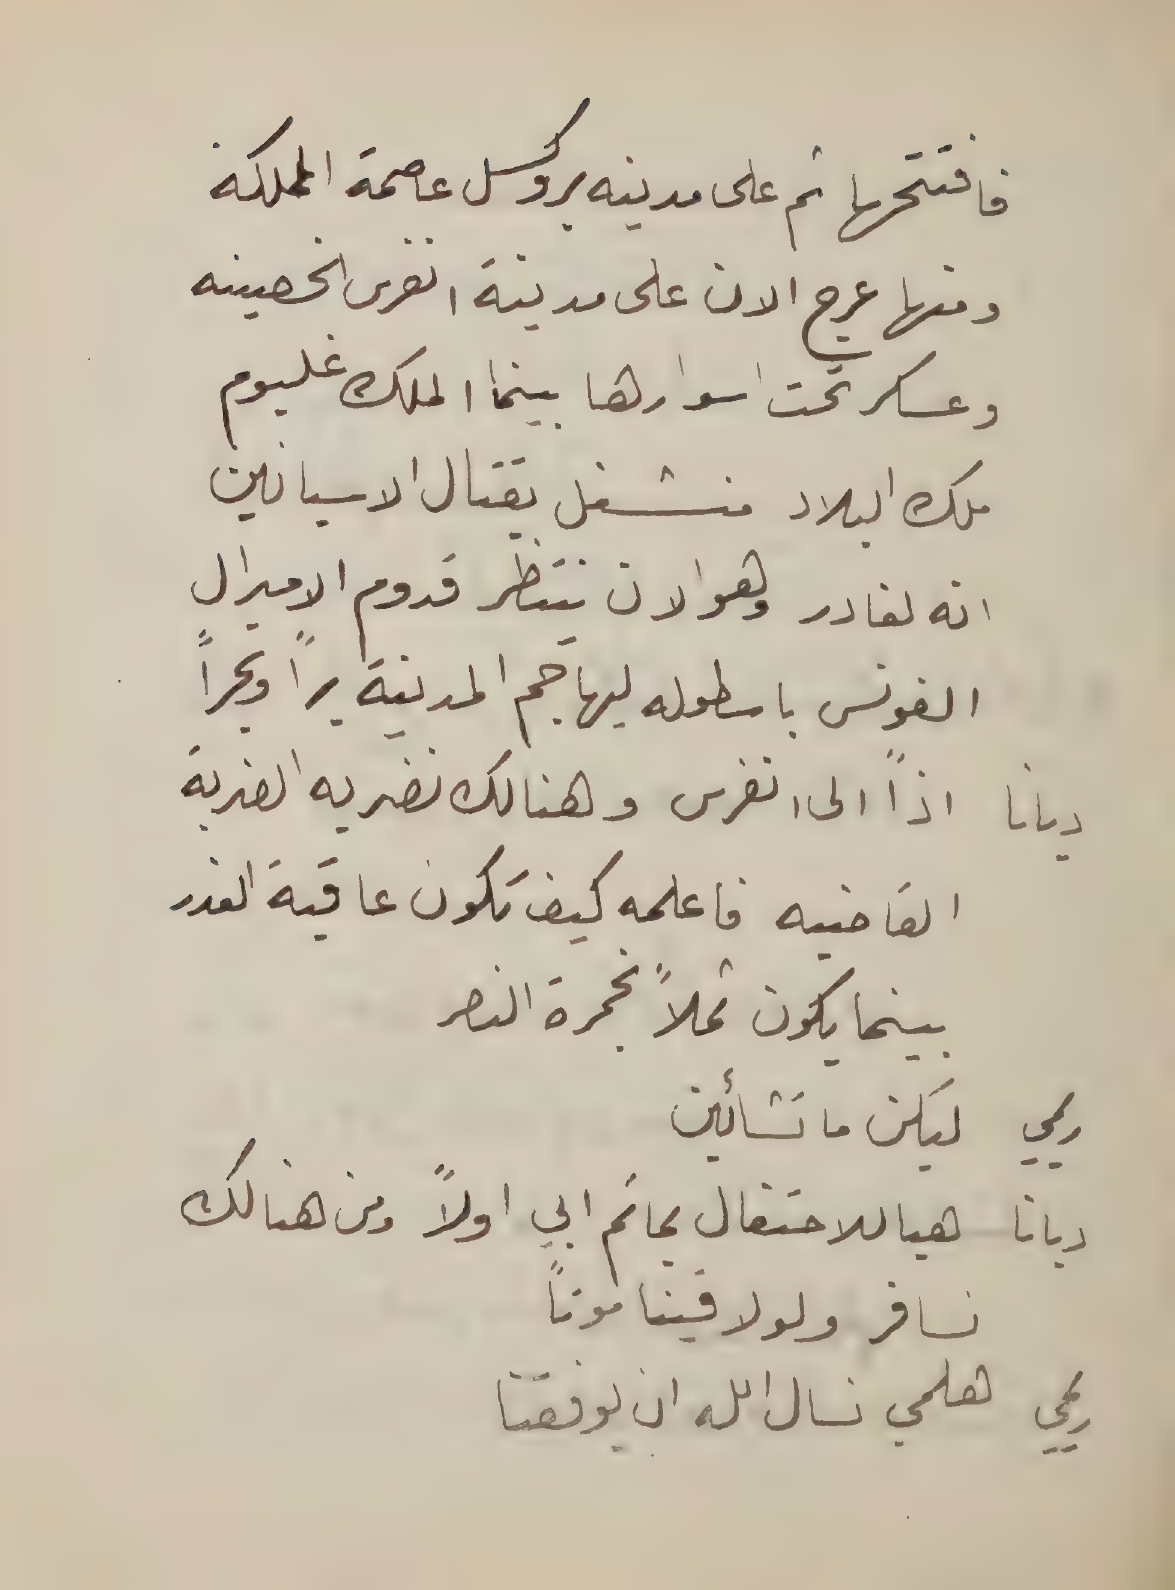 فافتتحها ثم على مدينه بروكسل عاصمة المملكه
ومنها عرج الان على مدينة انفرس الحصينه
وعسكر تحت اسوارها بينما الملك غليوم
ملك البلاد منشغل بقتال الاسبانين
انه لغادر وهو الان ينتظر قدوم الاميرال
الفونس باسطوله ليهاجم المدينة براً وبحراً
ديانا اذاً الى انفرس وهنالك نضربه الضربة
القاضيه فاعلمه كيف تكون عاقبة الغدر
بينما يكون ثملاً بخمرة النصر
ريمي ليكن ما تشائين
ديانا هيا للاحتفال بمأتم ابي اولاً ومن هنالك
نسافر ولو لاقينا موتاً
ريمي هلمي نسال الله ان يوفقنا